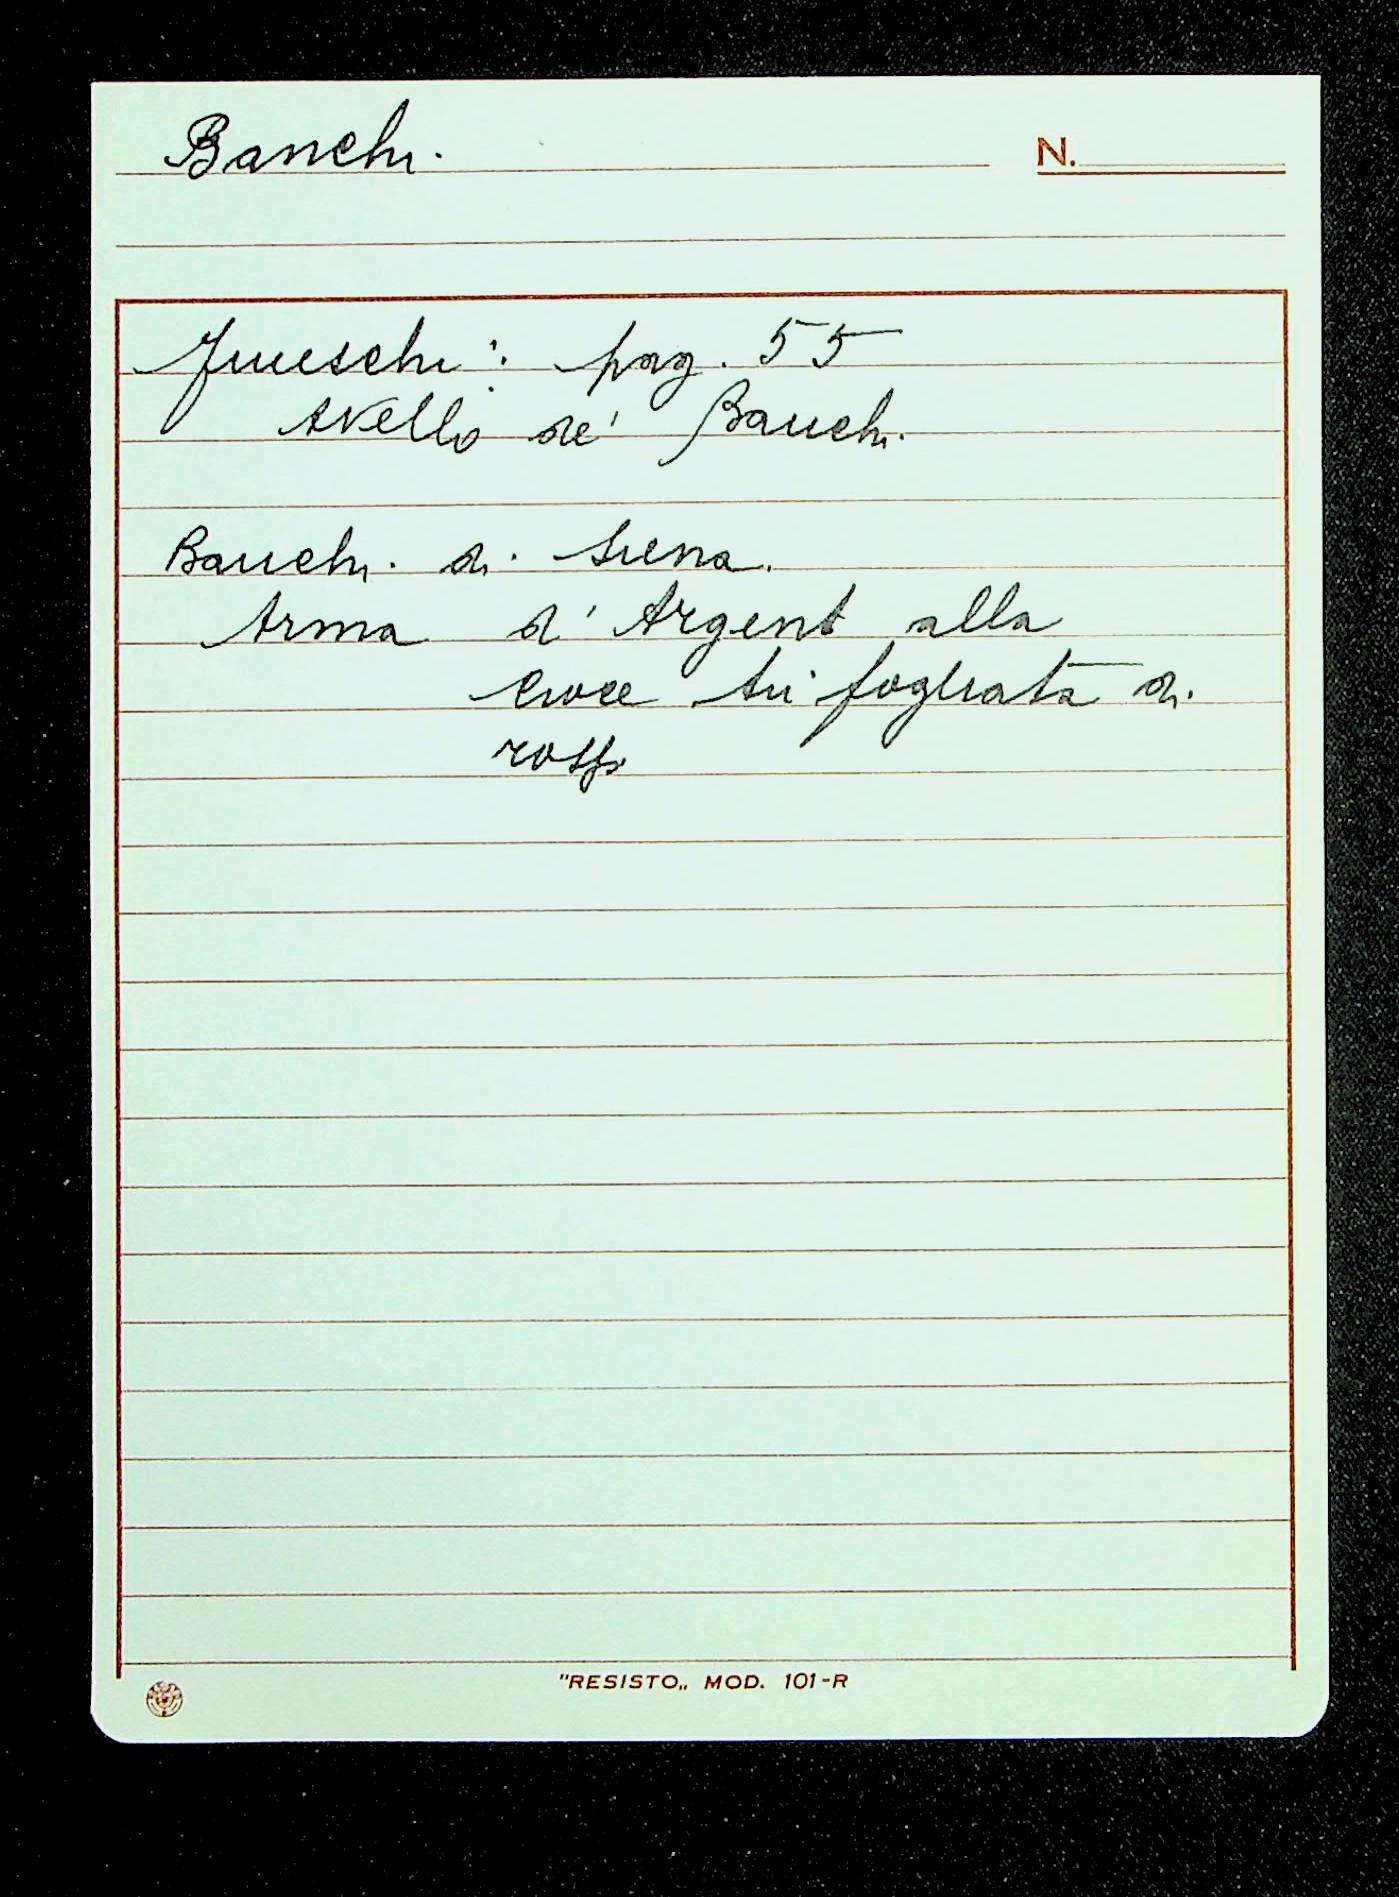 Banchi.
N.
Fineschi: pag. 55
Avello de' Banchi.
Banchi di Siena.
Arma d'Argento alla
croce trifogliata di
rosso
"RESISTO„ MOD. 101-R